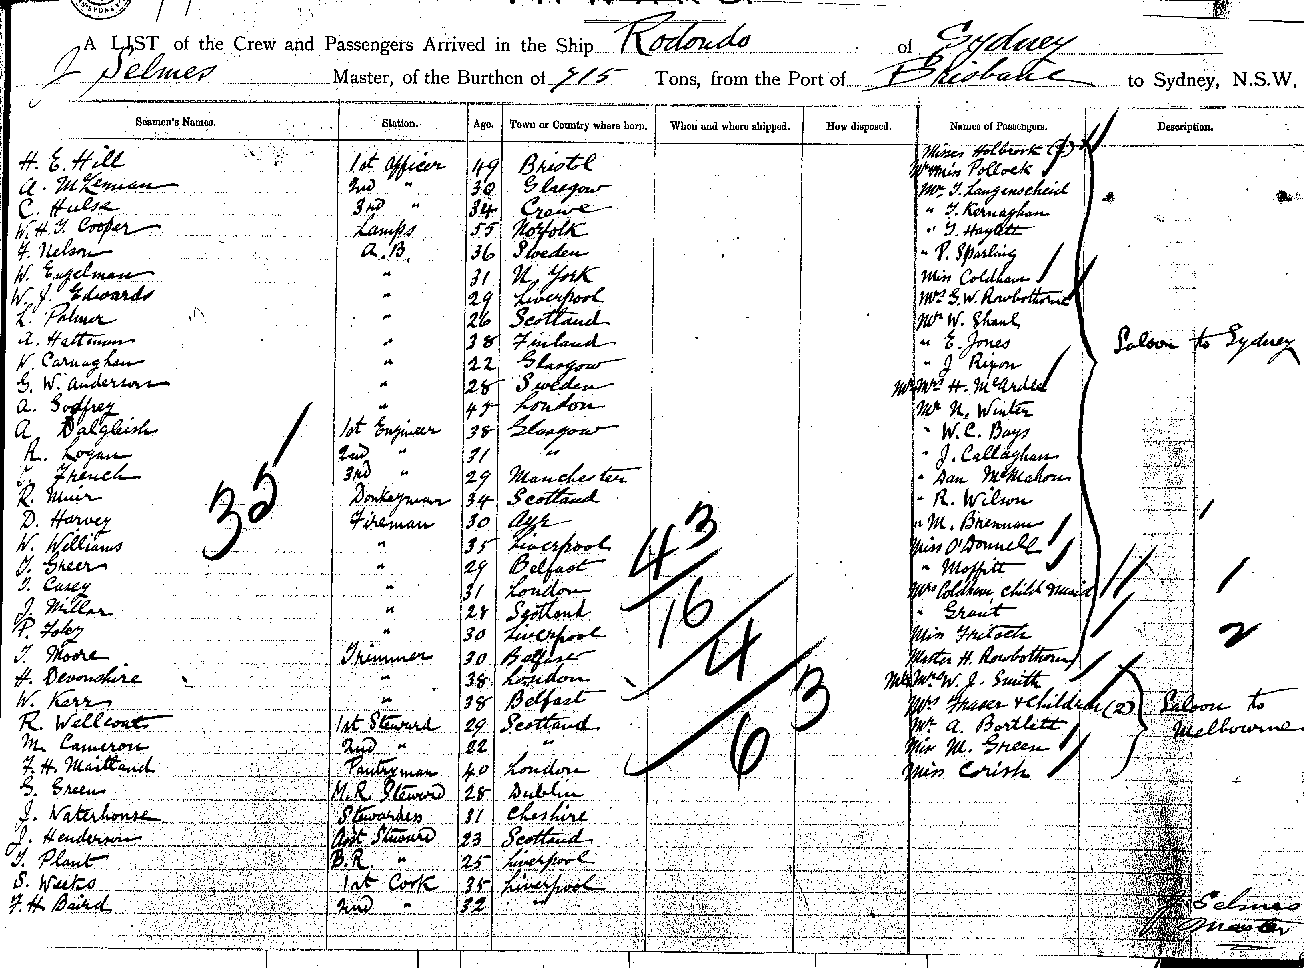 A LIST of the Crew and Passengers Arrived in the Ship Rodondo of Sydney
J Selmes Master, of the Burthen of 915 Tons, from the Port of Brisbane to Sydney, N.S.W,
Seamen's Names. Station. Age. Town or Country where born. When and where shipped. How disposed. Names of Passengers. Description.
Misses Holbrook (2)
H. E. Hill 1st Officer 49 Bristol Miss Pollock
A. McLennan 2nd " 30 Glasgow Mr J. Langenscheid
C. Hulse 3rd " 34 Crewe " J. Kernaghan
W.H.J. Cooper Lamps 55 Norfolk " J. Haylett
F. Nelson A.B. 36 Sweden " P. Sparling
W. Engelman " 31 N. York Miss Coldham
W. J. Edwards " 29 Liverpool Mrs G.W. Rowbotham
L. Palmer " 26 Scotland Mr W. Ghaul
A. Hattenan " 38 Finland " E. Jones
Saloon to Sydney
W. Carnaghan " 22 Glasgow " J Rixon
G. W. Anderson " 28 Sweden Mr Mrs H. McArdel
A. Godfrey " 45 London Mr N. Winter
A Dalgleish 1st Engineer 38 Glasgow " W.C. Bays
R. Logan 2nd " 31 " " J. Callaghan
J. French 3rd " 29 Manchester " Dan McMahon
R. Muir Donkeyman 34 Scotland " R. Wilson
35
D. Harvey Fireman 30 Ayr " M. Brennan
43
W. Williams " 35 Liverpool Miss O'Donnell
J. Greer " 29 Belfast " Moffitt
J. Casey " 31 London Mrs Coldham child & maid
1
J. Millar " 28 Scotland " Grant
16
P. Foley " 30 Liverpool Miss Fritsch
2
J. Moore Trimmer 30 Belfast Master H. Rowbotham
4
H. Devonshire " 38 London Mr Mrs W. J. Smith
3
W. Kerr " 38 Belfast Mrs Fraser & Children (2)
Saloon to Melbourne
R. Wellcoat 1st Steward 29 Scotland Mr A. Bartlett
M. Cameron 2nd " 22 " Miss M. Green
6
F. H. Maitland Pantryman 40 London Miss Corish
G. Green M.R. Steward 28 Dublin
J. Waterhouse Stewardess 31 Cheshire
J. Henderson Asst Steward 23 Scotland
J. Plant B.R. " 25 Liverpool
S. Weeks 1st Cook 35 Liverpool
F. H. Baird 2nd " 32 "
J Selmes
Master